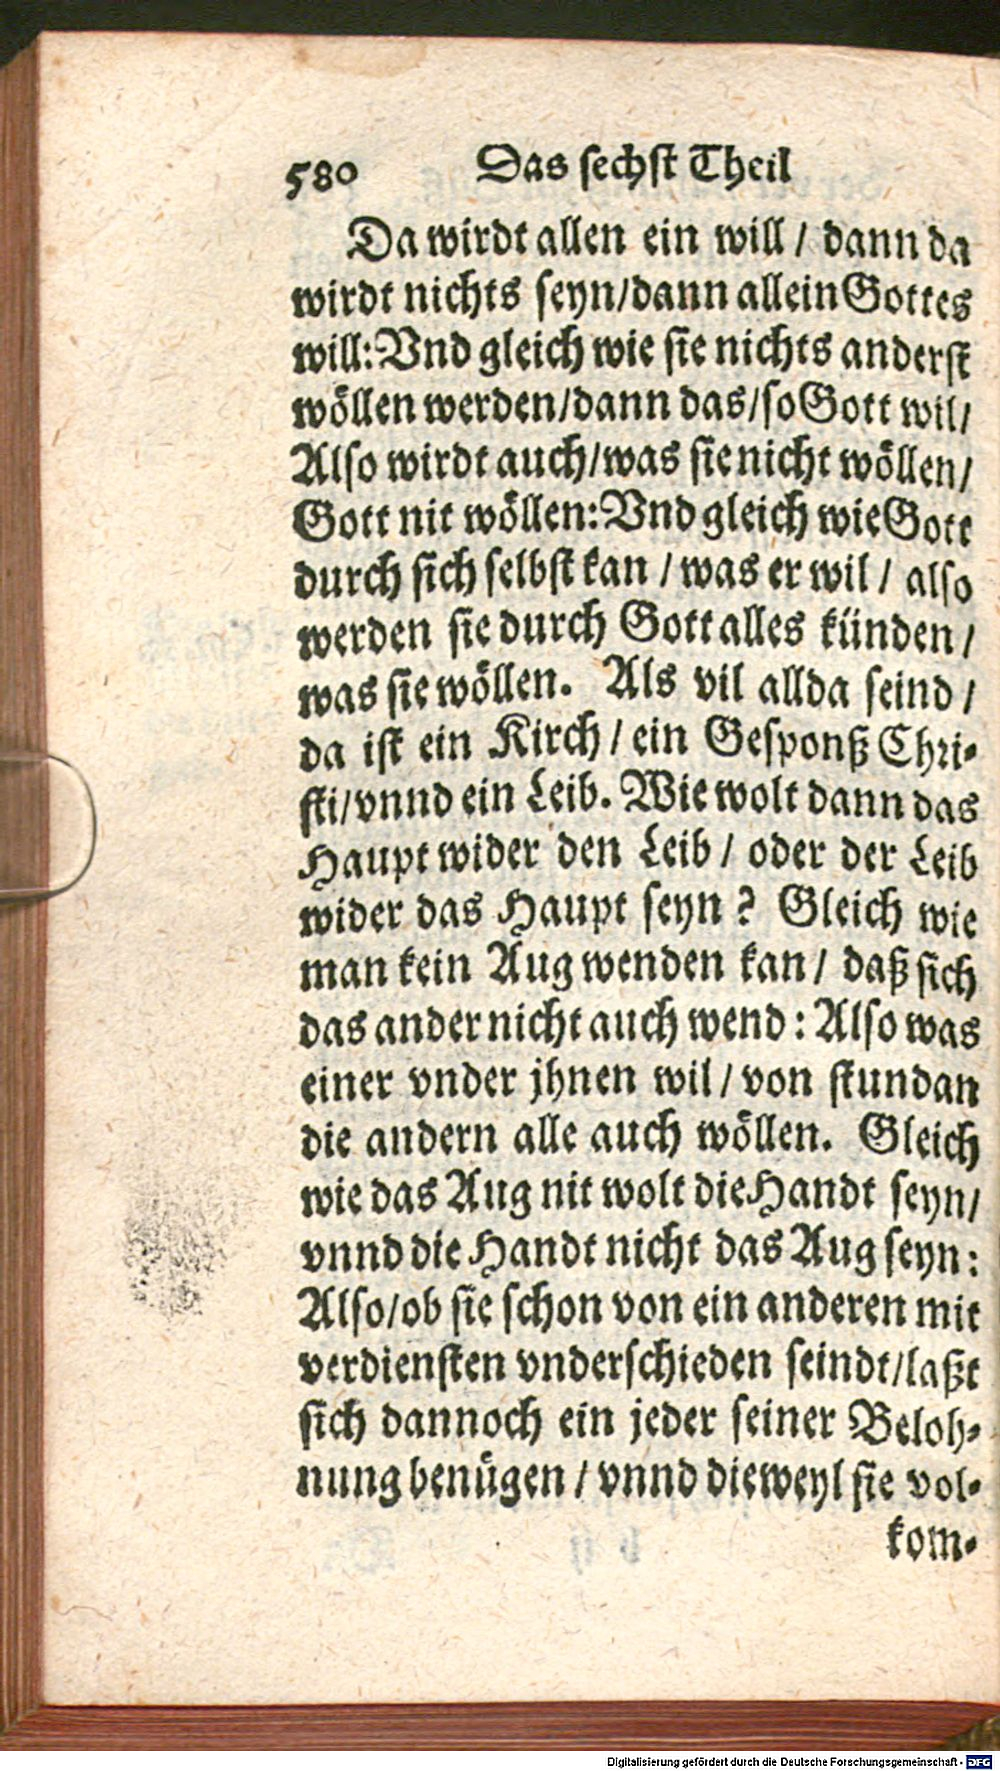 580 Das sechst Theil
Da wirdt allen ein will / dann da
wirdt nichts seyn/dann allein Gottes
will: Vnd gleich wie sie nichts anderst
wöllen werden/dann das/so Gott wil/
Also wirdt auch/was sie nicht wöllen/
Gott nit wöllen: Vnd gleich wie Gott
durch sich selbst kan / was er wil / also
werden sie durch Gott alles künden /
was sie wöllen. Als vil allda seind /
da ist ein Kirch / ein Gesponß Chri-
sti/vnnd ein Leib. Wie wolt dann das
Haupt wider den Leib / oder der Leib
wider das Haupt seyn ? Gleich wie
man kein Aug wenden kan / daß sich
das ander nicht auch wend : Also was
einer vnder jhnen wil / von stundan
die andern alle auch wöllen. Gleich
wie das Aug nit wolt die Handt seyn/
vnnd die Handt nicht das Aug seyn:
Also/ob sie schon von ein anderen mit
verdiensten vnderschieden seindt/laßt
sich dannoch ein jeder seiner Beloh-
nung benügen / vnnd dieweyl sie vol-
kom-
Digitalisierung gefördert durch die Deutsche Forschungsgemeinschaft - DFG